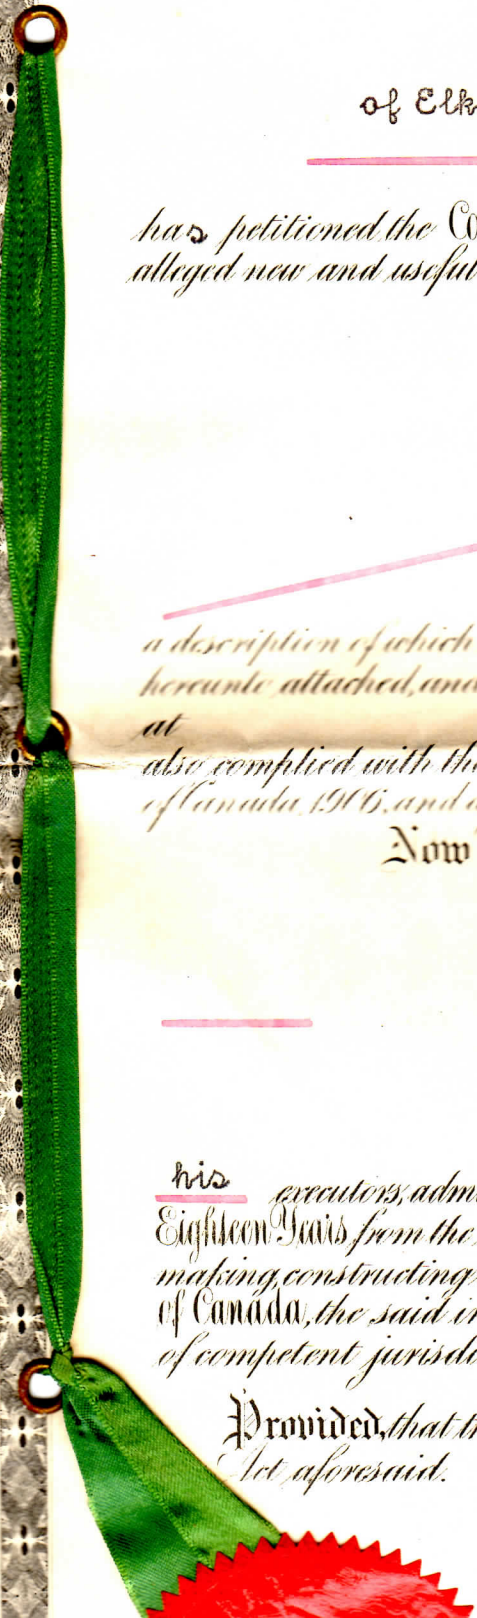 of Elk
has petitioned the Co
alleged new and useful
a description of which
hereunto attached, and
at
also complied with th
of Canada, 1906, and a
Now
his executors, adm
Eighteen Years from the
making, constructing
of Canada, the said in
of competent jurisdi
Provided, that th
Act aforesaid.